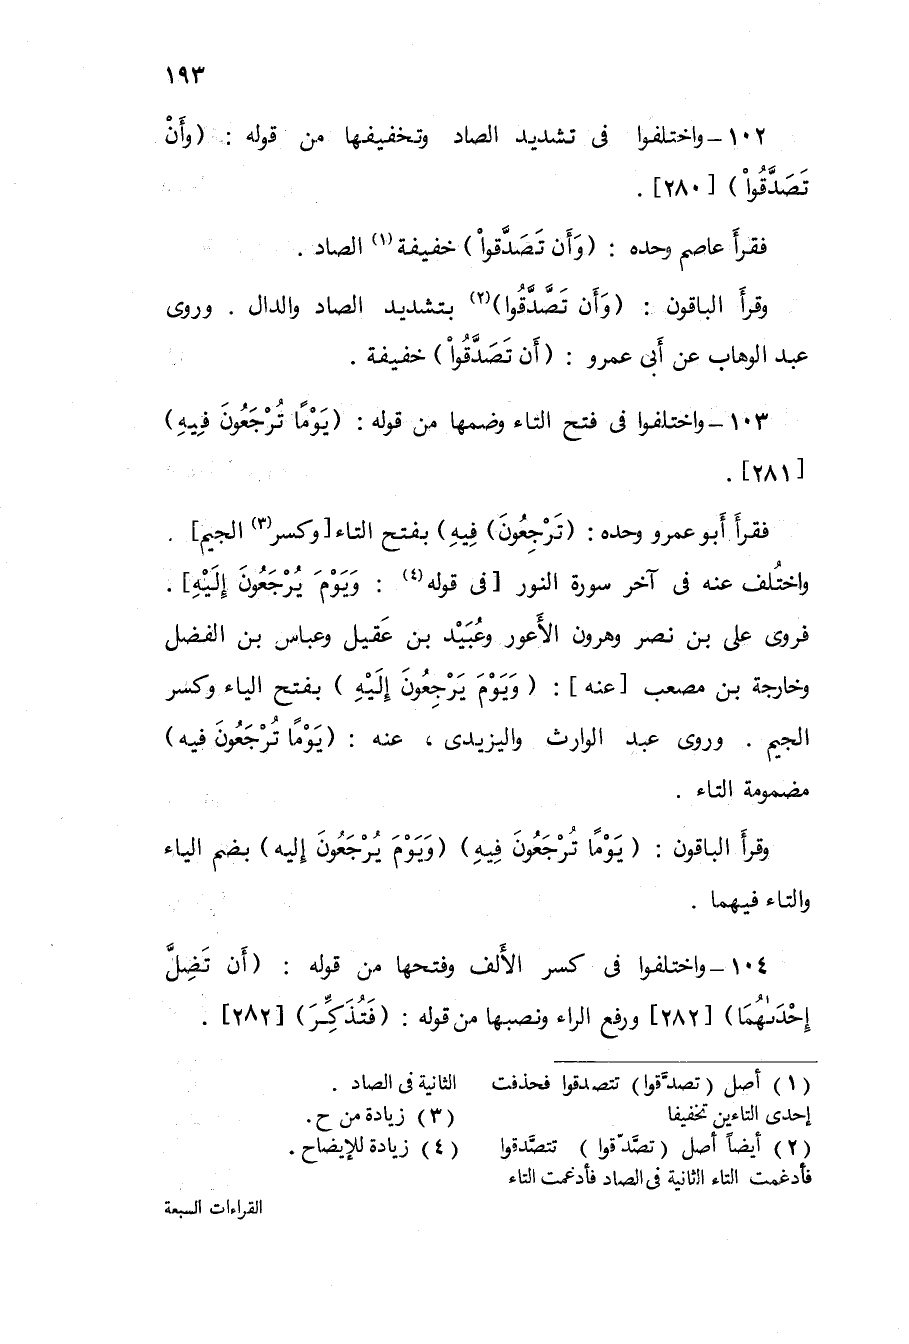 ١٩٣
١٠٢ – واختلفوا فى تشديد الصاد وتخفيفها من قوله : ( وأَنْ
تَصَدَّقُواْ ) [ ٢٨٠ ] .
فقرأَ عاصم وحده : ( وَأَن تَصَدَّقواْ ) خفيفة (١) الصاد .
وقرأَ الباقون : ( وَأَن تَصَّدَّقُوا ) (٢) بتشديد الصاد والدال . وروى
عبد الوهاب عن أَبى عمرو : ( أَن تَصَدَّقُواْ ) خفيفة .
١٠٣ – واختلفوا فى فتح التاء وضمها من قوله : ( يَوْمًا تُرْجَعُونَ فِيهِ )
[ ٢٨١ ] .
فقرأَ أَبو عمرو وحده : ( تَرْجِعُونَ ) فِيهِ ) بفتح التاء [ وكسر (٣) الجيم ] .
واختُلف عنه فى آخر سورة النور [ فى قوله (٤) : وَيَوْمَ يُرْجَعُونَ إِلَيْهِ ] .
فروى على بن نصر وهرون الأَعور وعُبَيْد بن عَقيل وعباس بن الفضل
وخارجة بن مصعب [ عنه ] : ( وَيَوْمَ يَرْجِعُونَ إِلَيْهِ ) بفتح الياء وكسر
الجيم . وروى عبد الوارث واليزيدى ، عنه : ( يَوْمًا تُرْجَعُونَ فيه )
مضمومة التاء .
وقرأَ الباقون : ( يَوْمًا تُرْجَعُونَ فِيهِ ) ( وَيَوْمَ يُرْجَعُونَ إليه ) بضم الياء
والتاء فيهما .
١٠٤ – واختلفوا فى كسر الأَلف وفتحها من قوله : ( أَن تَضِلَّ
إِحْدَىٰهُمَا ) [ ٢٨٢ ] ورفع الراء ونصبها من قوله : ( فَتُذَكِّرَ ) [ ٢٨٢ ] .
( ١ ) أصل ( تصدَّقوا ) تتصدقوا فحذفت
إحدى التاءين تخفيفا
( ٢ ) أيضاً أصل ( تصَّدّقوا ) تتصَّدقوا
فأدغمت التاء الثانية فى الصاد فأدغمت التاء
الثانية فى الصاد .
( ٣ ) زيادة من ح .
( ٤ ) زيادة للإيضاح .
القراءات السبعة